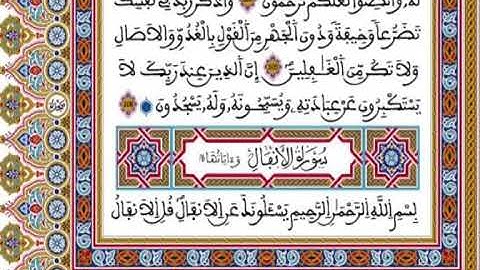 لَهُۥ وَأَنصِتُوا۟ لَعَلَّكُمْ تُرْحَمُونَ وَاذْكُر رَّبَّكَ فِي نَفْسِكَ
تَضَرُّعاً وَخِيفَةً وَدُونَ اَلْجَهْرِ مِنَ اَلْقَوْلِ بِالْغُدُوِّ وَالاَصَالِ
وَلاَ تَكُن مِّنَ اَلْغَٰفِلِينَ إِنَّ اَلذِينَ عِندَ رَبِّكَ لاَ
يَسْتَكْبِرُونَ عَنْ عِبَادَتِهِۦ وَيُسَبِّحُونَهُۥ وَلَهُۥ يَسْجُدُونَ
سُورَةُ الأَنفَالِ
بِسْمِ اِللَّهِ اِلرَّحْمَٰنِ اِلرَّحِيمِ يَسْـَٔلُونَكَ عَنِ اِلاَنفَالِ قُلِ اِلاَنفَالُ